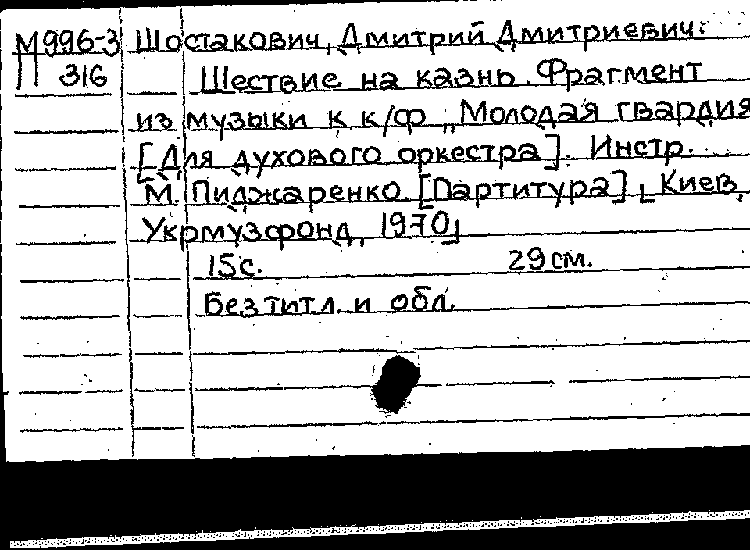 М996-3 Шостакович, Дмитрий Дмитриевич.
11 316 Шествие на казнь. Фрагмент
из музыки к к/ф „Молодая гвардия
[Для духового оркестра]. Инстр.
М. Пиджаренко. [Партитура]. [Киев,
Укрмузфонд, 1970]
15с. 29см.
Без титл. и обл.